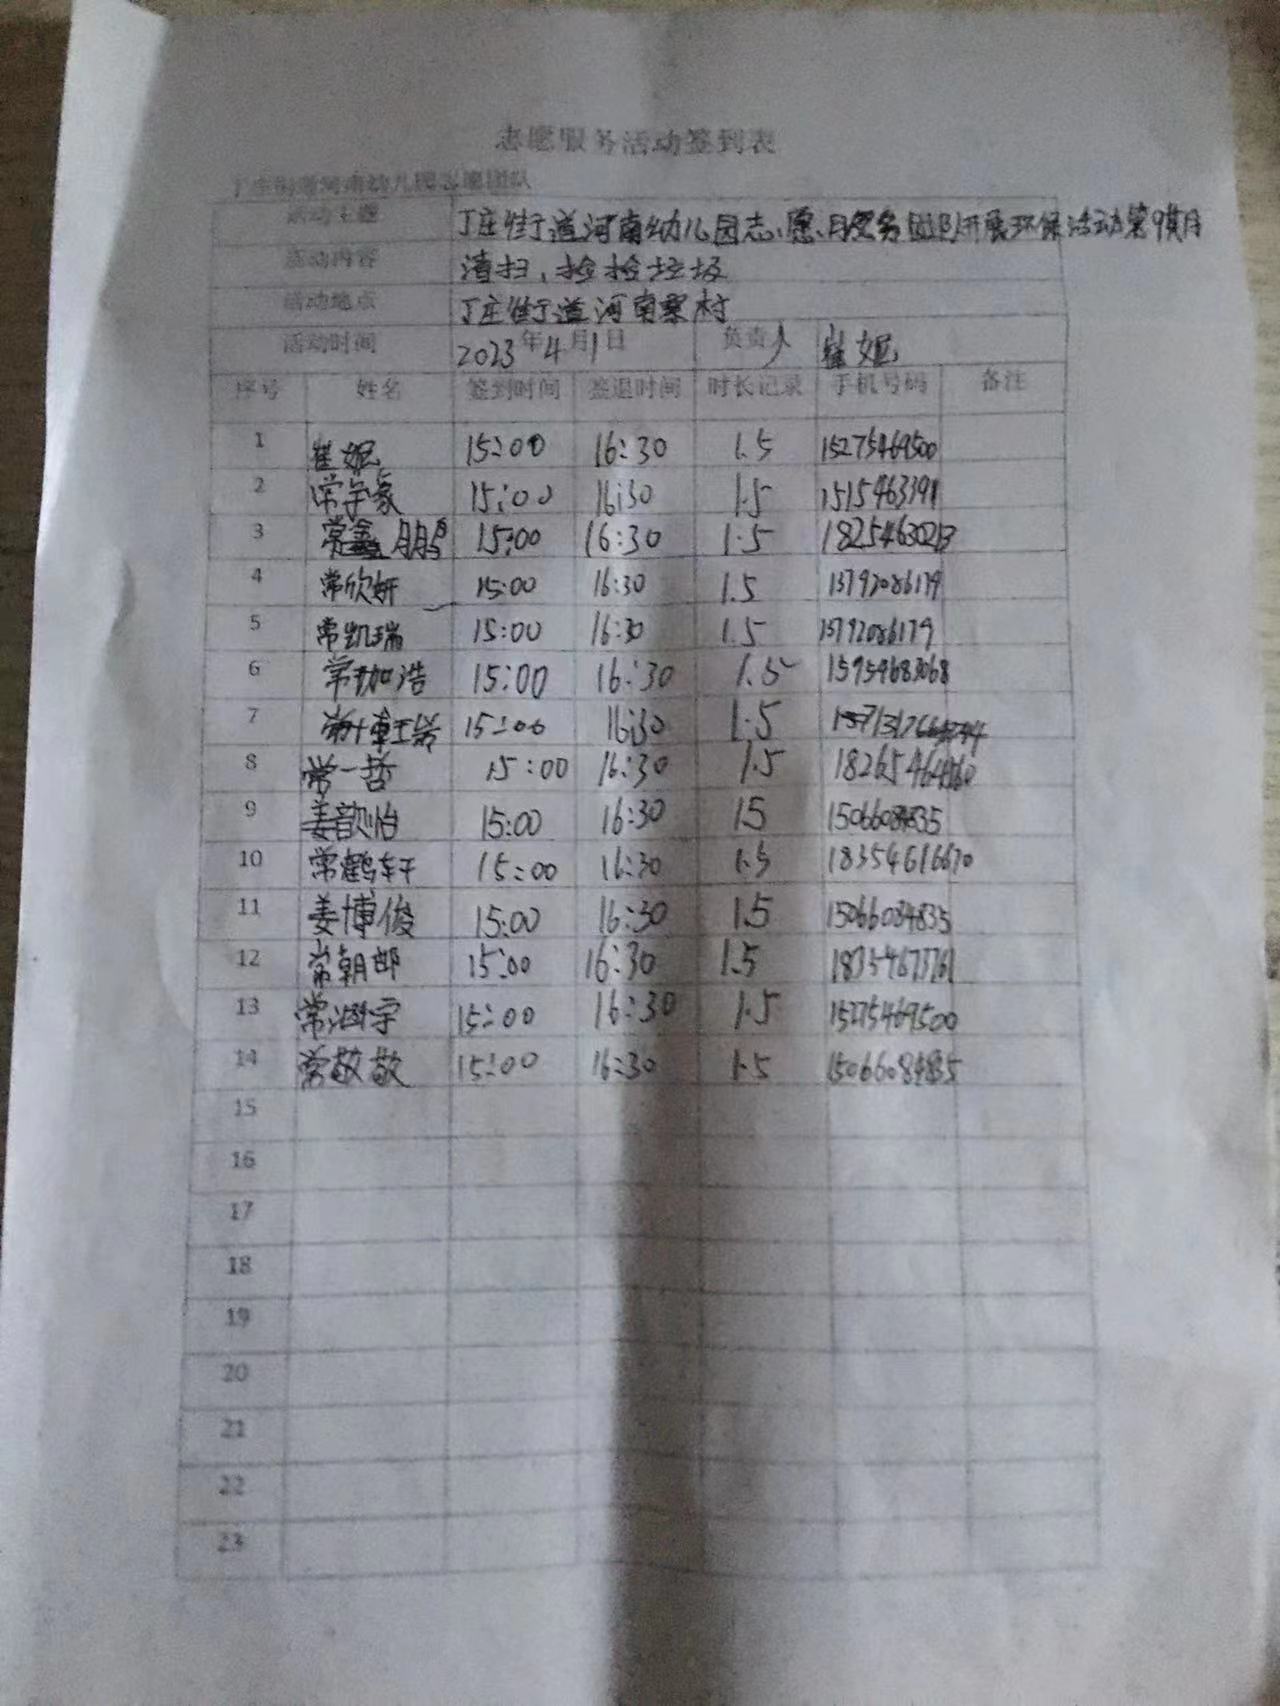 志愿服务活动签到表
丁庄街道河南幼儿园志愿团队
活动主题 丁庄街道河南幼儿园志愿服务团队开展环保活动第9期
活动内容 清扫、捡捡垃圾
活动地点 丁庄街道河南寨村
活动时间 2023年4月1日 负责人 崔妮
序号 姓名 签到时间 签退时间 时长记录 手机号码 备注
1 崔妮 15:00 16:30 1.5 15275469500
2 常学豪 15:00 16:30 1.5 1515463391
3 常鑫鹏 15:00 16:30 1.5 18254630213
4 常欣妍 15:00 16:30 1.5 13792086179
5 常凯瑞 15:00 16:30 1.5 13792086179
6 常珈浩 15:00 16:30 1.5
7 常 15:00 16:30 1.5
8 常一哲 15:00 16:30 1.5
9 姜歆怡 15:00 16:30 15 15066084835
10 常鹤轩 15:00 16:30 1.5 18354616670
11 姜博俊 15:00 16:30 1.5 15066084835
12 常朝郎 15:00 16:30 1.5 18354673761
13 常涵宇 15:00 16:30 1.5 15275469500
14 常敬敬 15:00 16:30 1.5 15066084835
15
16
17
18
19
20
21
22
23